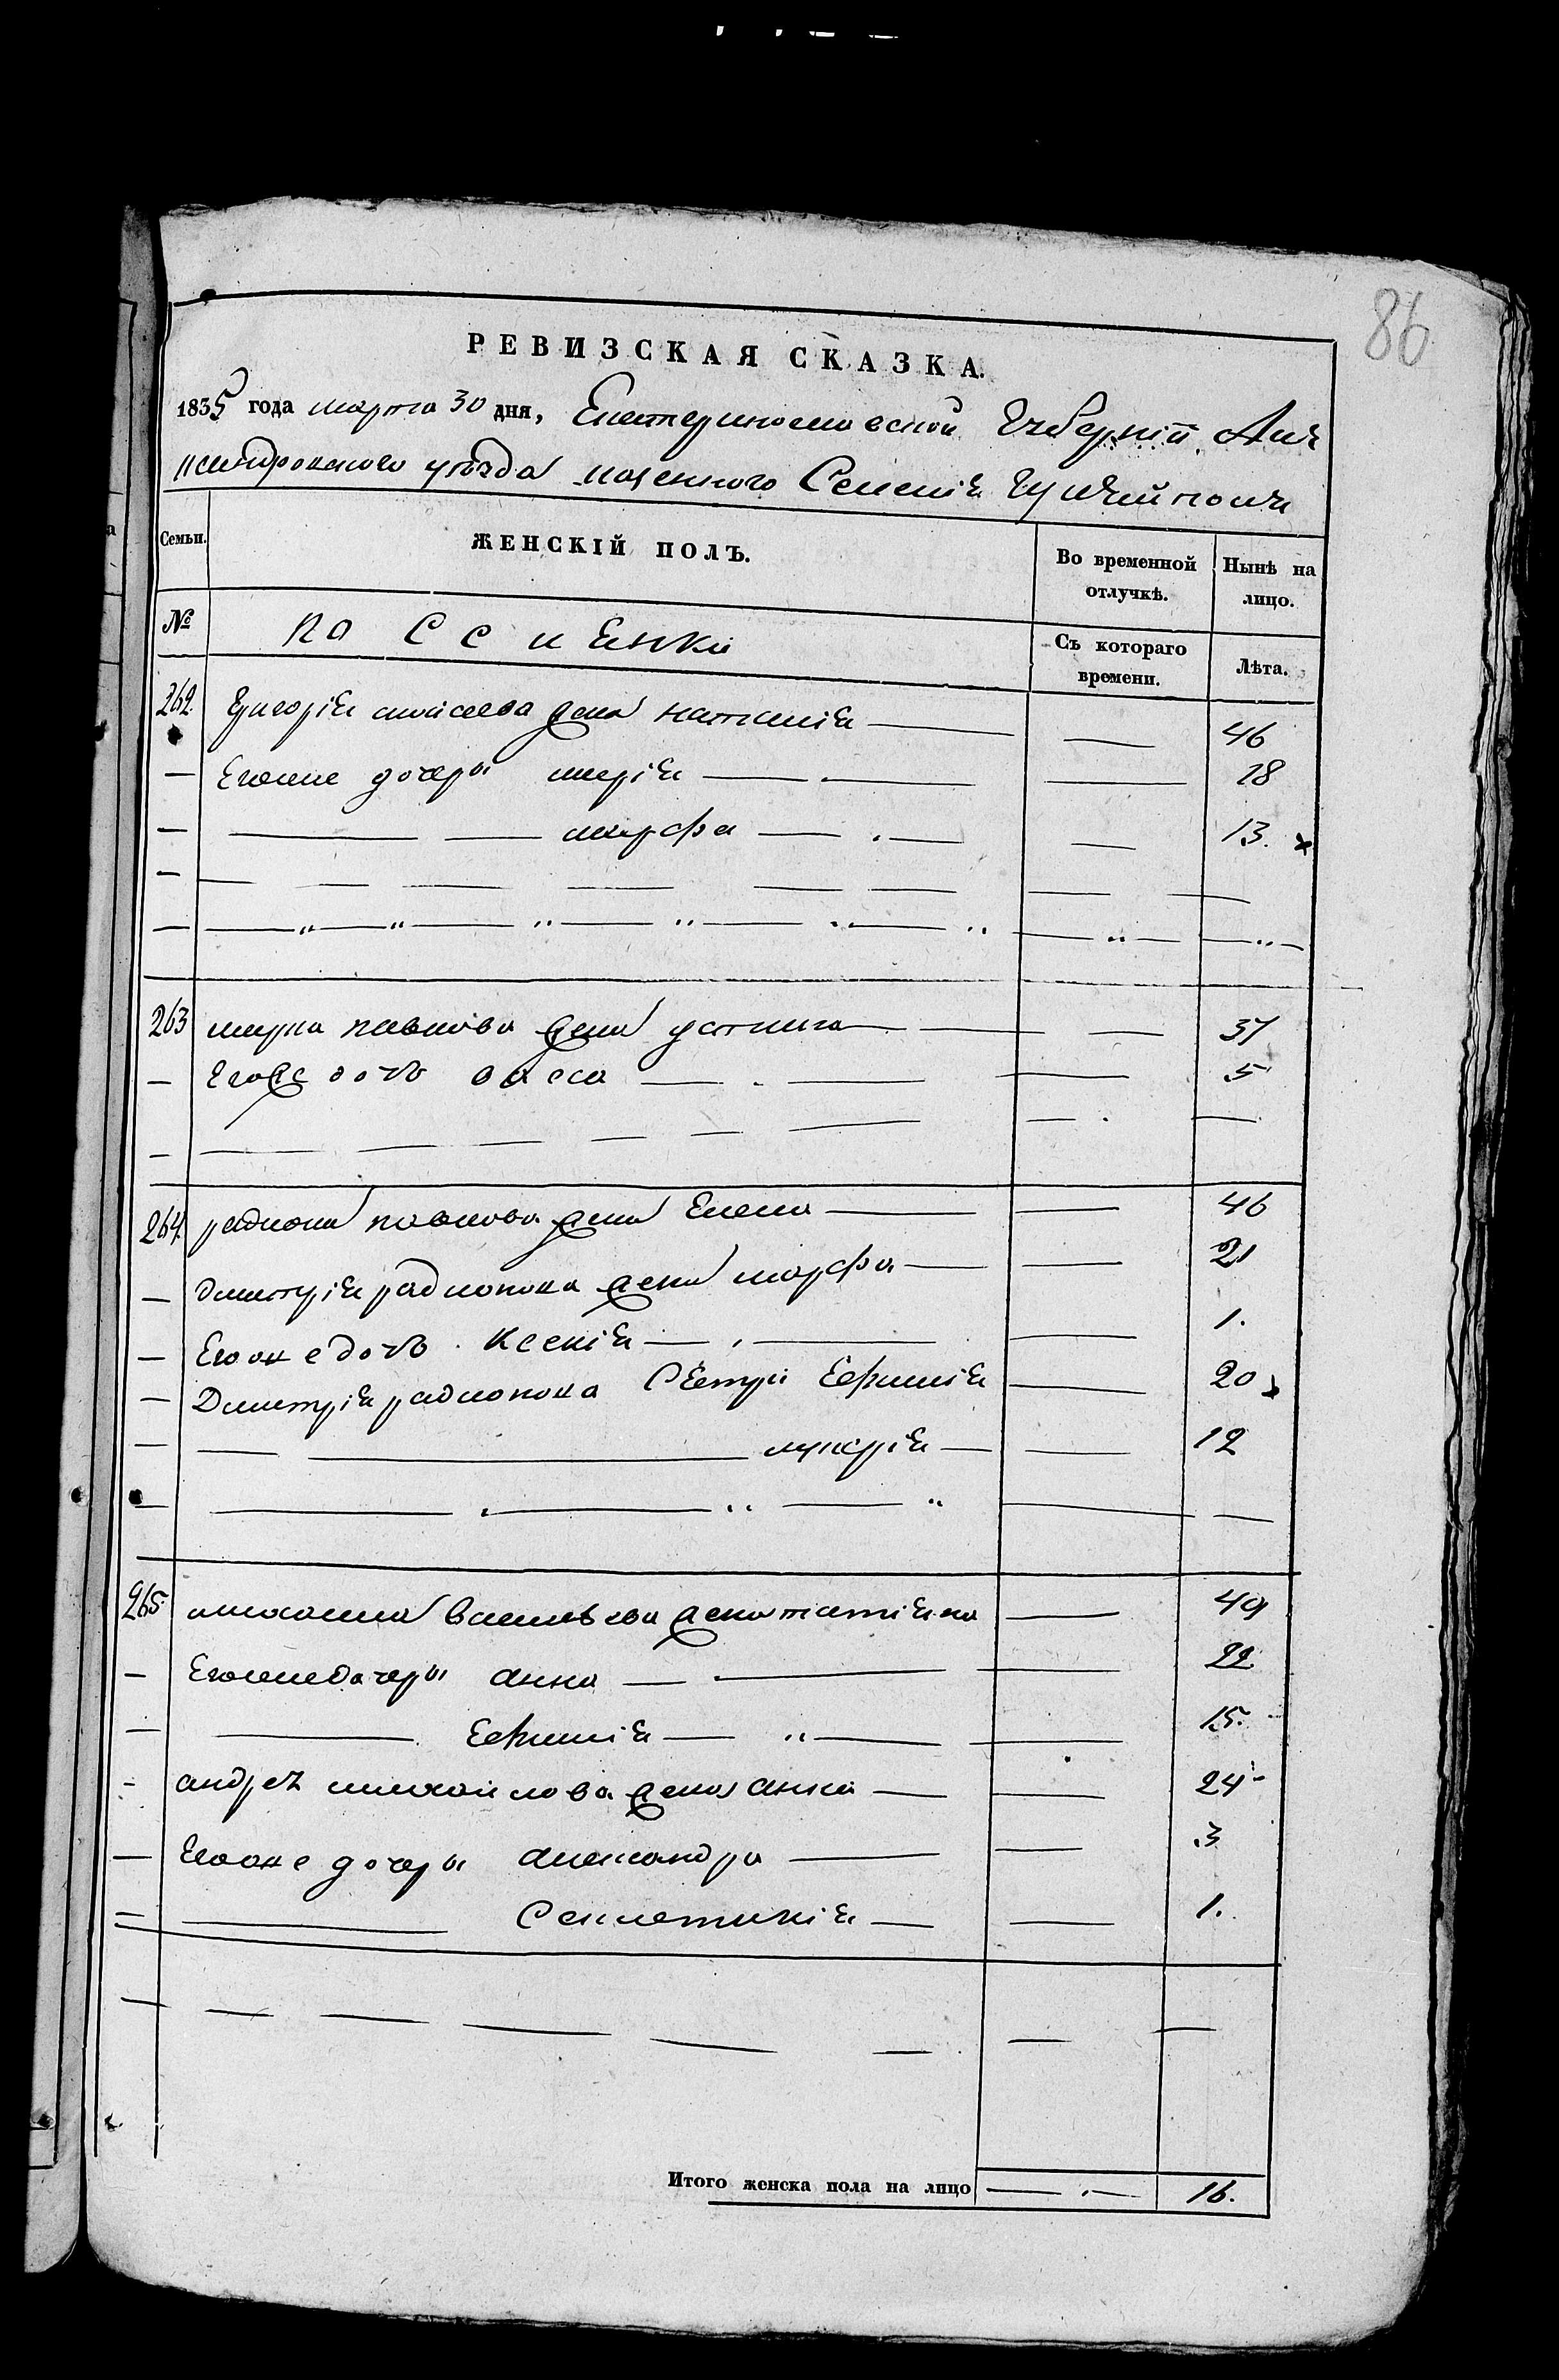 86
РЕВИЗСКАЯ СКАЗКА.
1835 года марта 30 дня, Екатеринославской Губернiи Але
ксандровского уѣзда казенного Селенiя Гуляйполя
Семьи.
ЖЕНСКIЙ ПОЛЪ.
Во временной отлучкѣ.
Нынѣ на лицо.
№
Съ котораго времени.
Лѣта.
262. Григорiя моисеева жена наталiя 46
Егоже дочери марiя 18
марфа 13.
263 марка павлова жена устинья 37
Егоже дочь васса 5
264. радиона павлова жена Елена 46
дмитрiя радионова жена марфа 21
Егоже дочь Ксенiя 1.
Дмитрiя радионова Сестры Ефимiя 20
лукерiя 12
265. михаила васильева жена татiяна 49
Егоже дочери анна 22
Ефимiя 15.
андрея михайлова жена анна 24
Егоже дочери александра 3
Секлетинiя 1.
Итого женска пола на лицо 16.